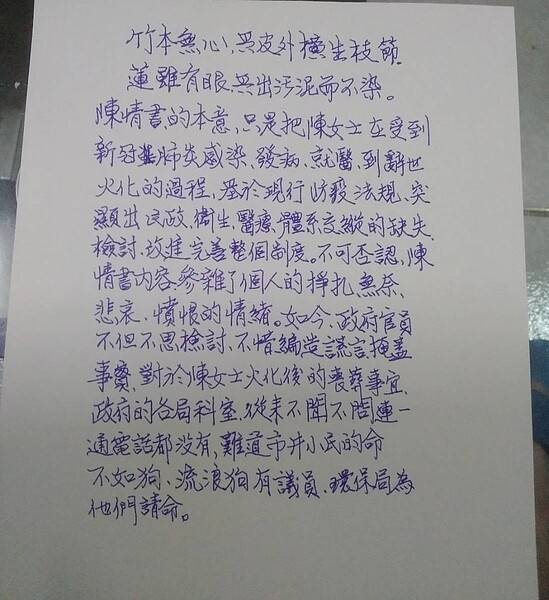 竹本無心,無皮外橫生枝節.
蓮雖有眼無出污泥而不染。
陳情書的本意,只是把陳女士在受到
新冠肺炎感染、發病、就醫、到辭世
火化的過程,基於現行防疫法規、突
顯出民政、衛生、醫療、體系交縱的缺失、
檢討、改進、完善整個制度。不可否認、陳
情書內容、參雜了個人的掙扎、無奈、
悲哀、憤恨的情緒。如今、政府官員
不但不思檢討、不惜編造謊言掩蓋
事實,對於陳女士火化後的喪葬事宜、
政府的各局科室、從來不聞不問連一
通電話都沒有,難道市井小民的命
不如狗、流浪狗有議員、環保局為
他們請命。